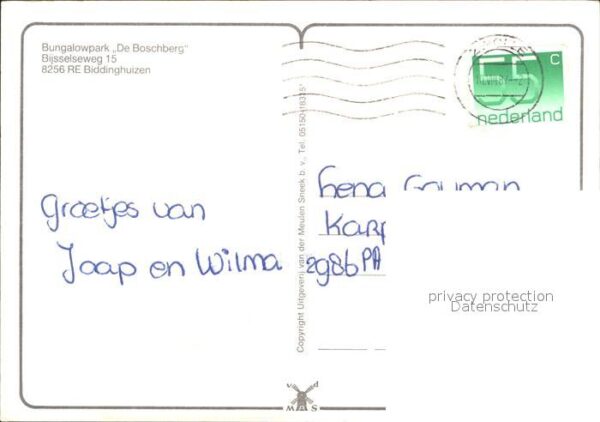 Bungalowpark „De Boschberg"
Bijsselseweg 15
8256 RE Biddinghuizen
Groetjes van
Jaap en Wilma
Copyright Uitgeverij van der Meulen Sneek b. v., Tel. 05150-18315
55 c
nederland
2986 PA
privacy protection
Datenschutz
v d
MAS